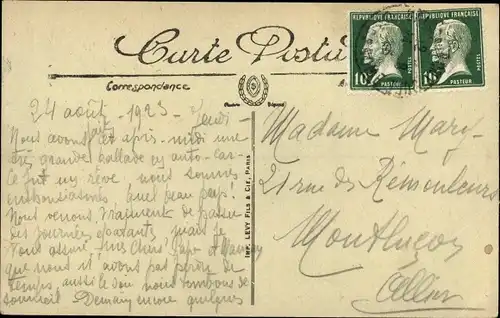 Carte Posta
REPVBLIQVE FRANÇAISE
REPVBLIQVE FRANÇAISE
10c POSTES
PASTEUR
10c POSTES
PASTEUR
Correspondance
24 août 1923. Jeudi
Nous avons fait cet après-midi une
très grande ballade en auto-car
ce fut un rêve nous sommes
enthousiasmés quel beau pays!
Nous venons vraiment de passer
des journées épatantes mais je
vous assure, mes chers
que nous n'avons pas perdu de
temps aussi le soir nous tombons de
sommeil Demain encore quelques
IMP. LEVY FILS & Cie, PARIS
Madame Mary
21 rue des Rémouleurs
Montluçon
Allier